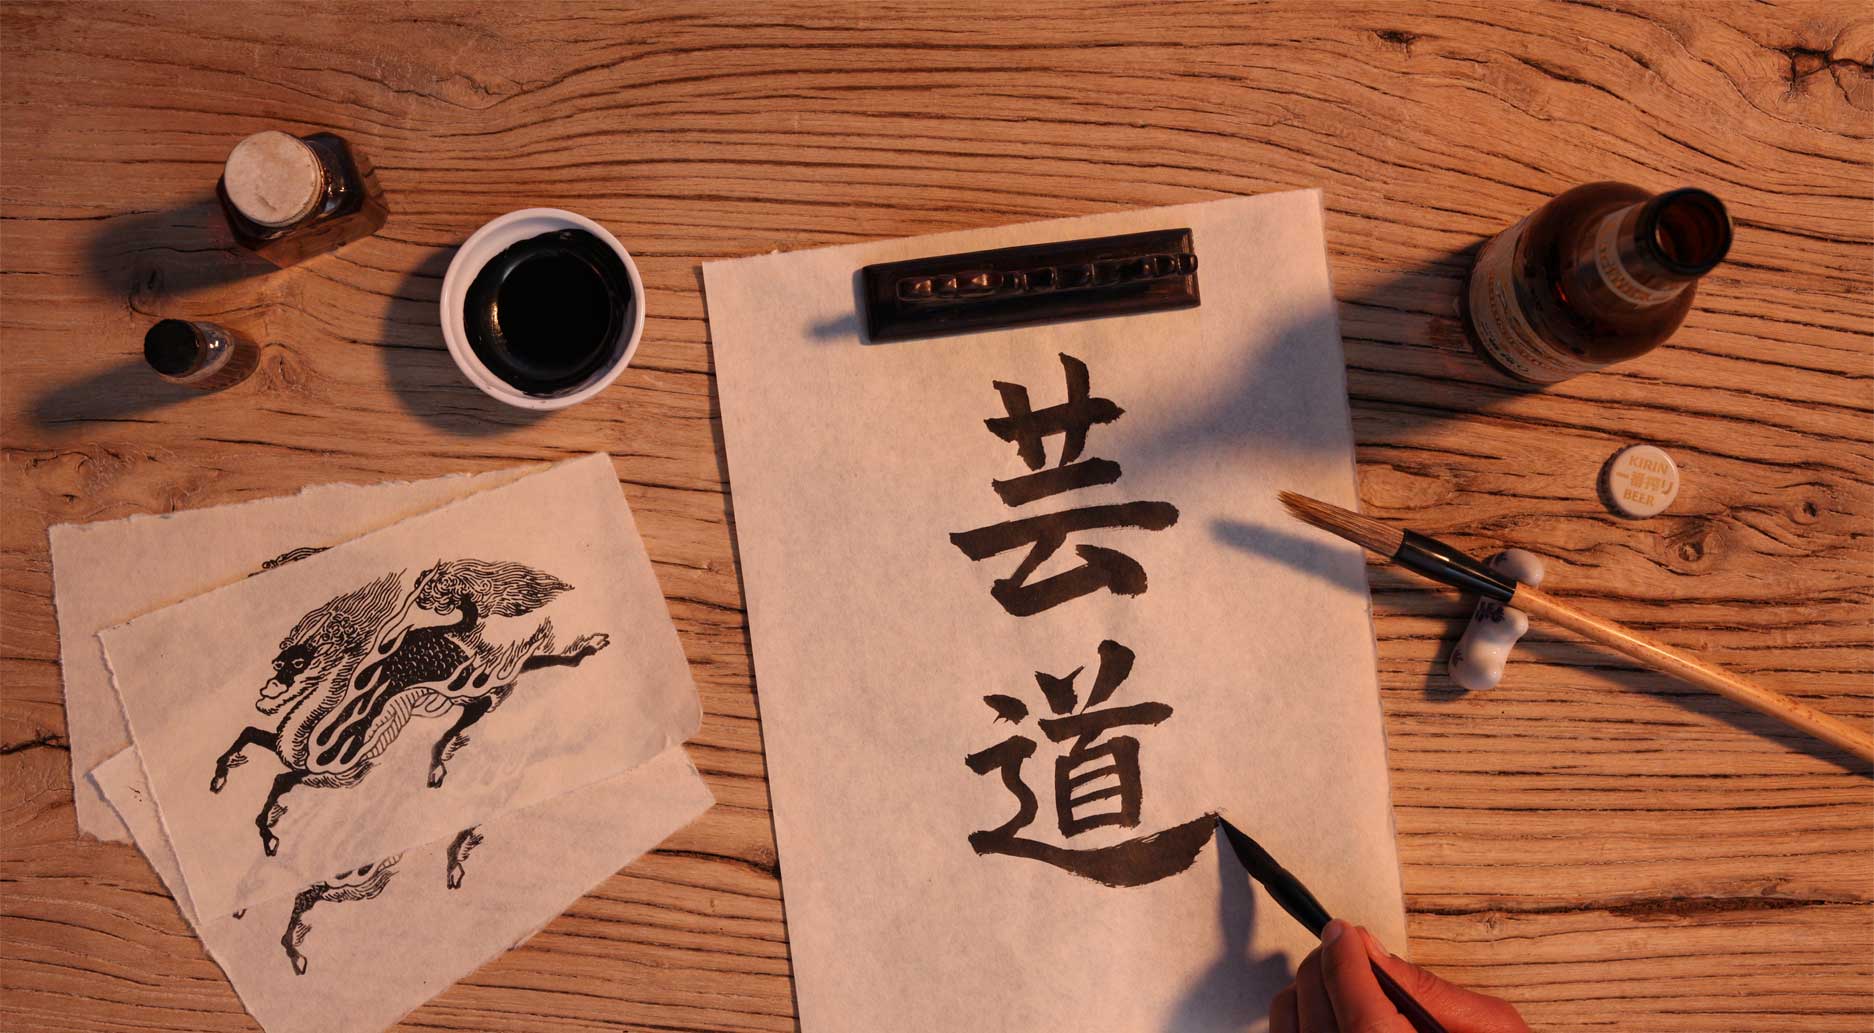 芸
道
KIRIN
一番搾り
BEER